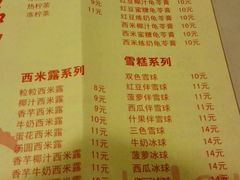 热柠茶 9元
冻柠茶 11元
红豆椰汁龟苓膏 10元
红豆蜜糖龟苓膏 10元
红豆炼奶龟苓膏 10元
西米椰汁龟苓膏 10元
西米蜜糖龟苓膏 10元
西米炼奶龟苓膏 10元
西米露系列
粒粒西米露 8元
椰汁西米露 9元
香芋西米露 11元
牛奶西米露 11元
蛋花西米露 11元
奶圆西米露 11元
香芋椰汁西米露 11元
香芋牛奶西米露 11元
雪糕系列
双色雪球 10元
红豆伴雪球 11元
菠萝伴雪球 11元
西瓜伴雪球 11元
什果伴雪球 11元
三色雪球 14元
牛奶冰球 14元
菠萝冰球 14元
西瓜冰球 14元
14元